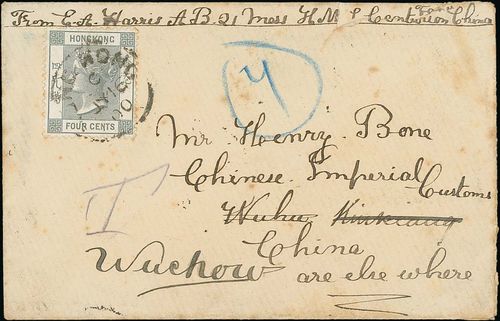 From E. A. Harris A B. 21 Mess H.M.S Centurion China
HONGKONG
FOUR CENTS
4
Mr Henry Bone
Chinese Imperial Customs
Wuhu Kinkiang
China
Wuchow are else where